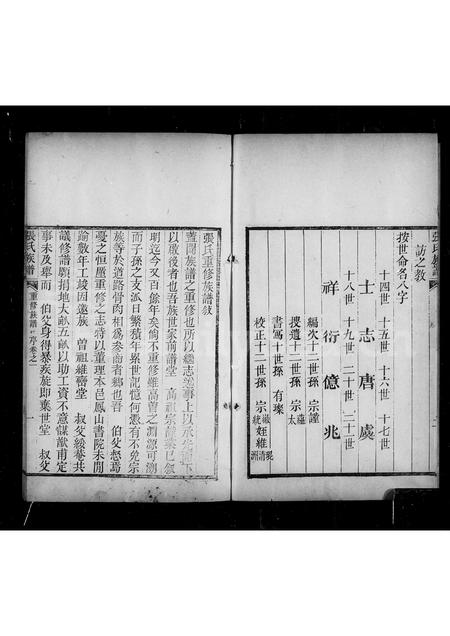 訪之教
按世命名八字
十四世 十五世 十六世 十七世
士 志 唐 虞
十八世 十九世 二十世 三十世
祥 衍 億 兆
編次十二世孫 宗謹
授遺十二世孫 宗 太
書寫十世孫 有璨
校正十二世孫 宗 姪維
張氏重修族譜敘
蓋聞族譜之重修也所以繼志述事上以承先而下
以啟後者也吾族世家前譜堂 高祖宗 已敘
明迄今又百餘年矣倘不重修雖高曾之淵源可溯
而子孫之支派日繁積年累世記憶何憑有不免宗
族等於道路骨肉相爲參商者鄉也吾 伯父怒焉
憂之恒嚴重修之志將以董理本邑鳳山書院未閒
踰數年工竣因邀族 曾祖維 壽堂 叔父綏菴共
議修譜願捐地大畝五畝以助工資不意謀猷甫定
事未及舉而 伯父身得暴疾旋即棄世堂 叔父
張氏族譜 重修族譜 序卷之一